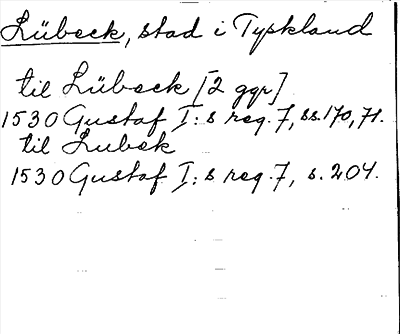 Lübeck, stad i Tyskland
til Lübeck [2 ggr]
1530 Gustaf I:s reg. 7, ss. 170, 71.
til Lubek
1530 Gustaf I:s reg. 7, s. 204.